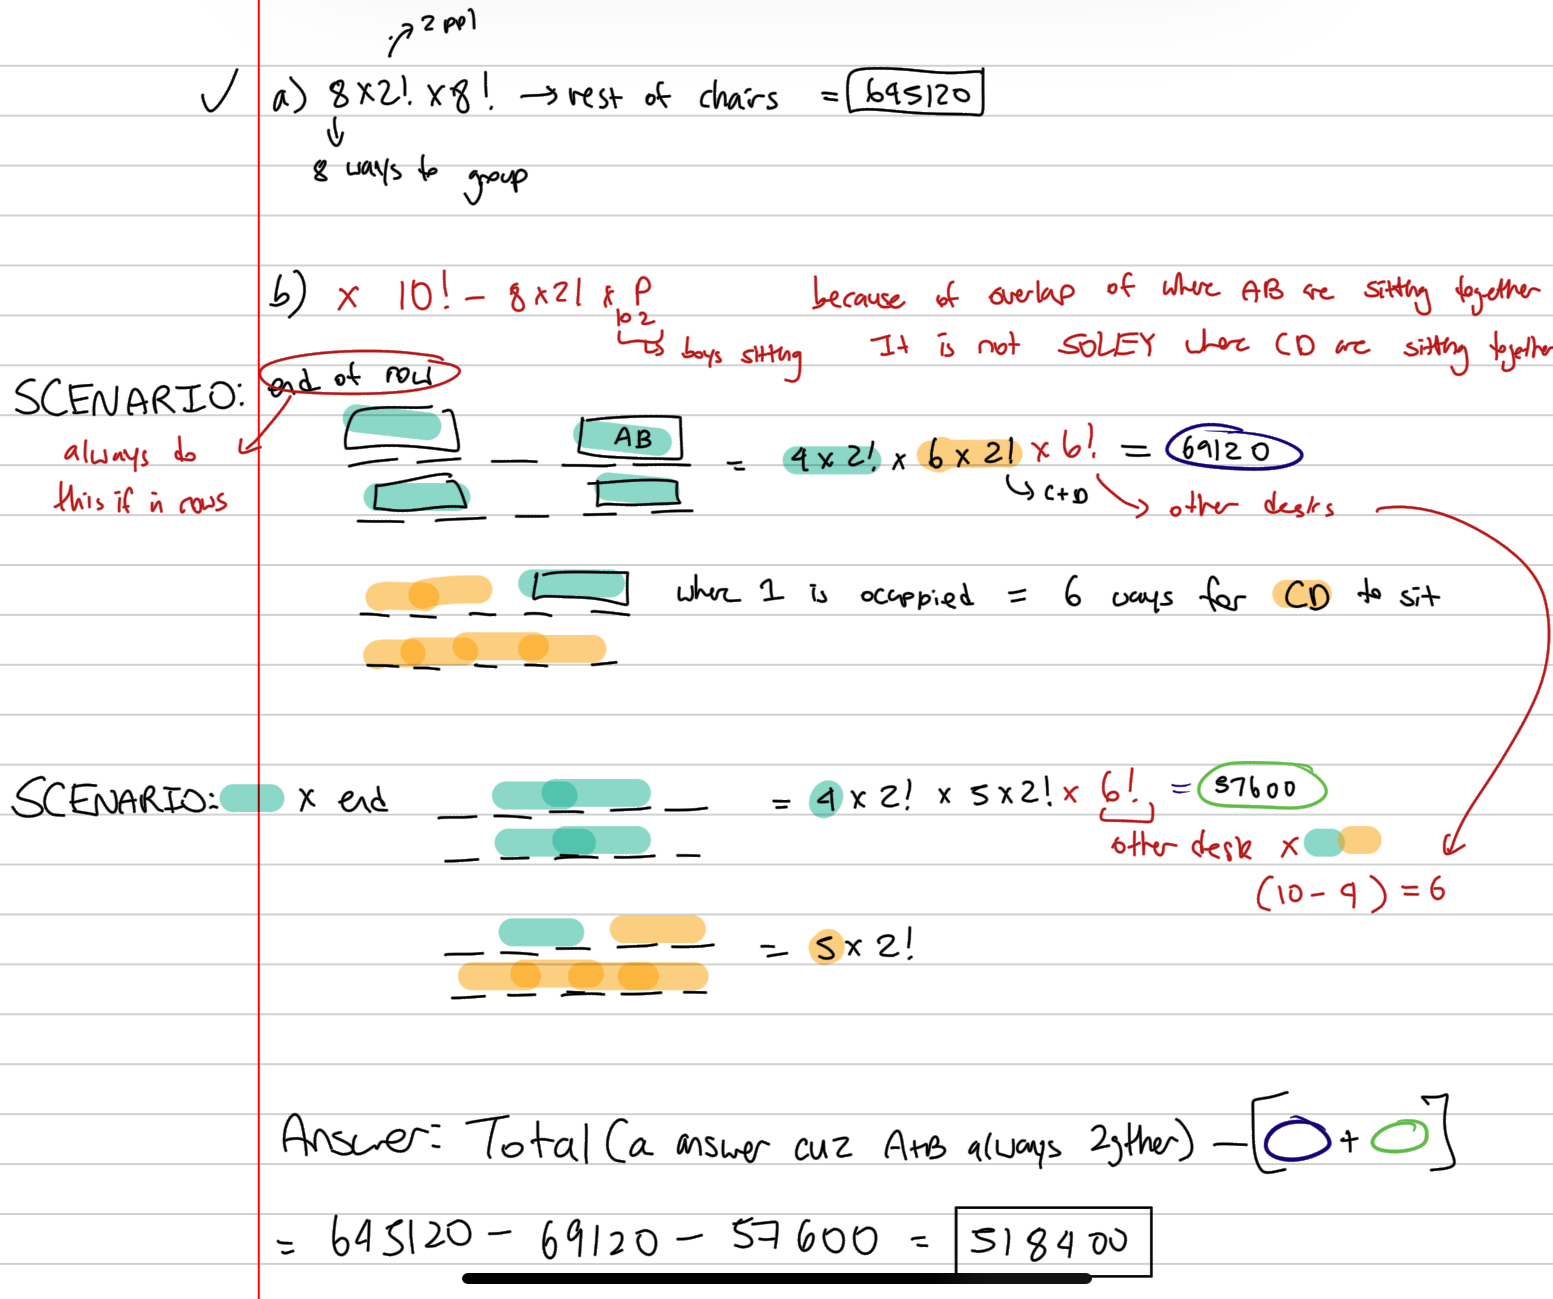 → 2 ppl
✓ a) 8 x 2! x 8! → rest of chairs = 645120
↓
8 ways to group
b) x 10! - 8 x 2! x P because of overlap of where AB are sitting together
10 2
↳ boys sitting It is not SOLEY where CD are sitting together
SCENARIO: end of row
always do
this if in rows
AB
= 4 x 2! x 6 x 2! x 6! = 69120
↳ C+D → other desks
where 1 is occappied = 6 ways for CD to sit
SCENARIO: x end
= 4 x 2! x 5 x 2! x 6! = 57600
other desk x
(10 - 4) = 6
= 5 x 2!
Answer: Total (a answer cuz A+B always 2gther) - [ + ]
= 645120 - 69120 - 57600 = 518400